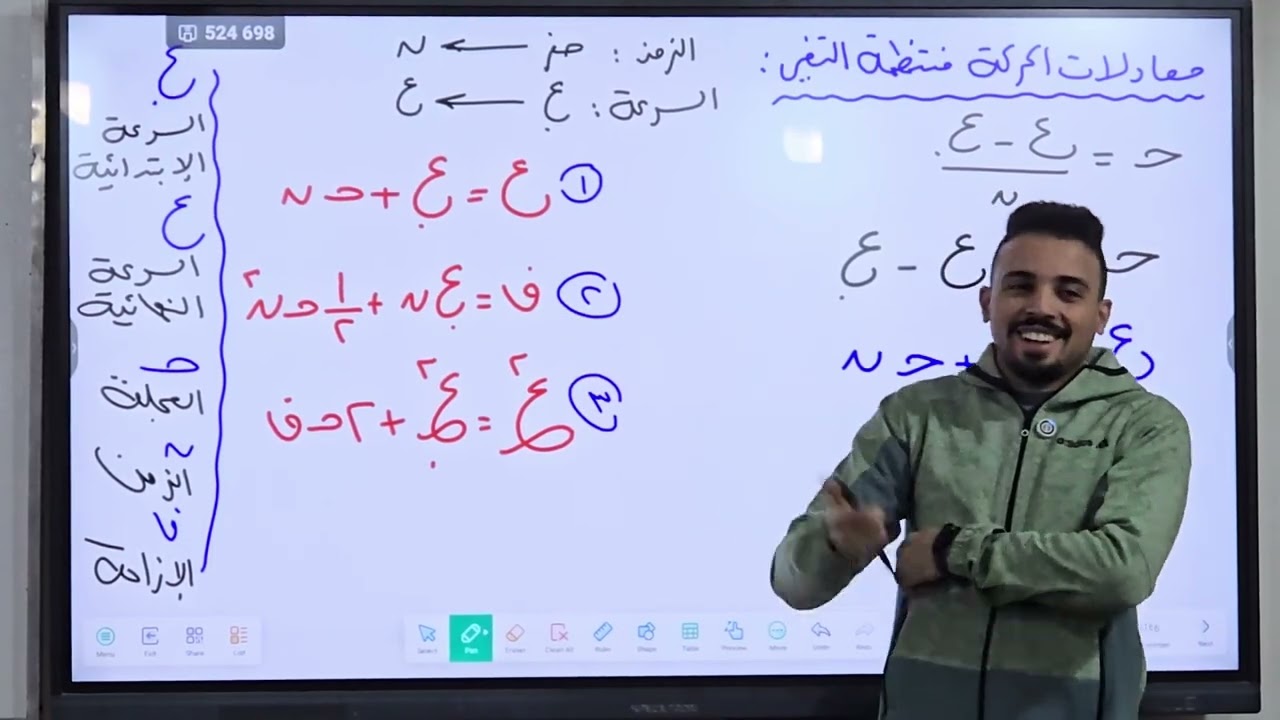 معادلات الحركة منتظمة التغير :
حـ = (ع - ع.) / ن
حـ ع - ع.
ع + حـ ن
الزمن : صز ← ن
السرعة : ع ← ع
① ع = ع. + حـ ن
② ف = ع. ن + ١/٢ حـ ن٢
③ ع٢ = ع.٢ + ٢ حـ ف
ع.
السرعة
الابتدائية
ع
السرعة
النهائية
حـ
العجلة
ن
الزمن
ف
الإزاحة
524 698
Menu
Exit
Share
List
Select
Pen
Eraser
Clean All
Ruler
Shape
Table
Preview
More
Undo
Redo
Next